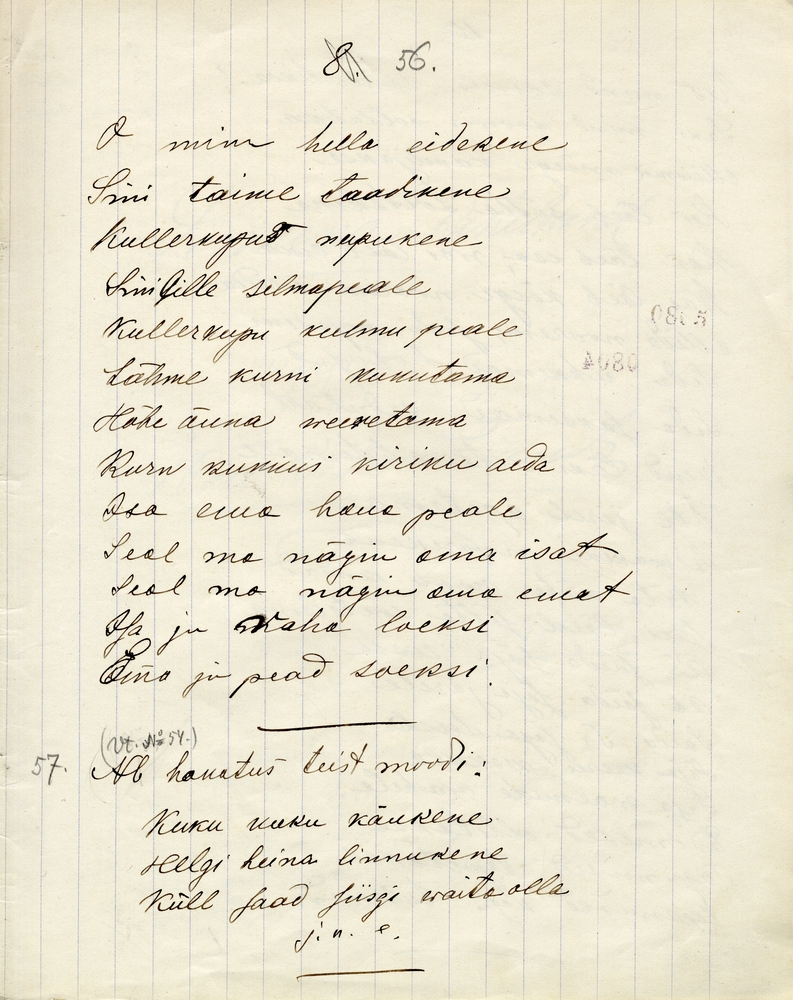 8. 56.
O minu hella eidekene
Sini taime taadikene
Kullerkuput nupukene
Sinilille silmapeale
Kullerkupu kulmu peale
Lähme kurni kukutama
Hõbe õuna weeretama
Kurn kukkus kiriku aeda
Isa ema haua peale
Seal ma nägin oma isat
Seal ma nägin oma emat
Isa ju raha loeksi
Ema ju pead soeksi.
(Vt. № 54.)
57. Ab hauatus teist moodi:
Kuku kuku käukene
Helgi heina linnukene
Küll saad siisgi waita olla
j. n. e.